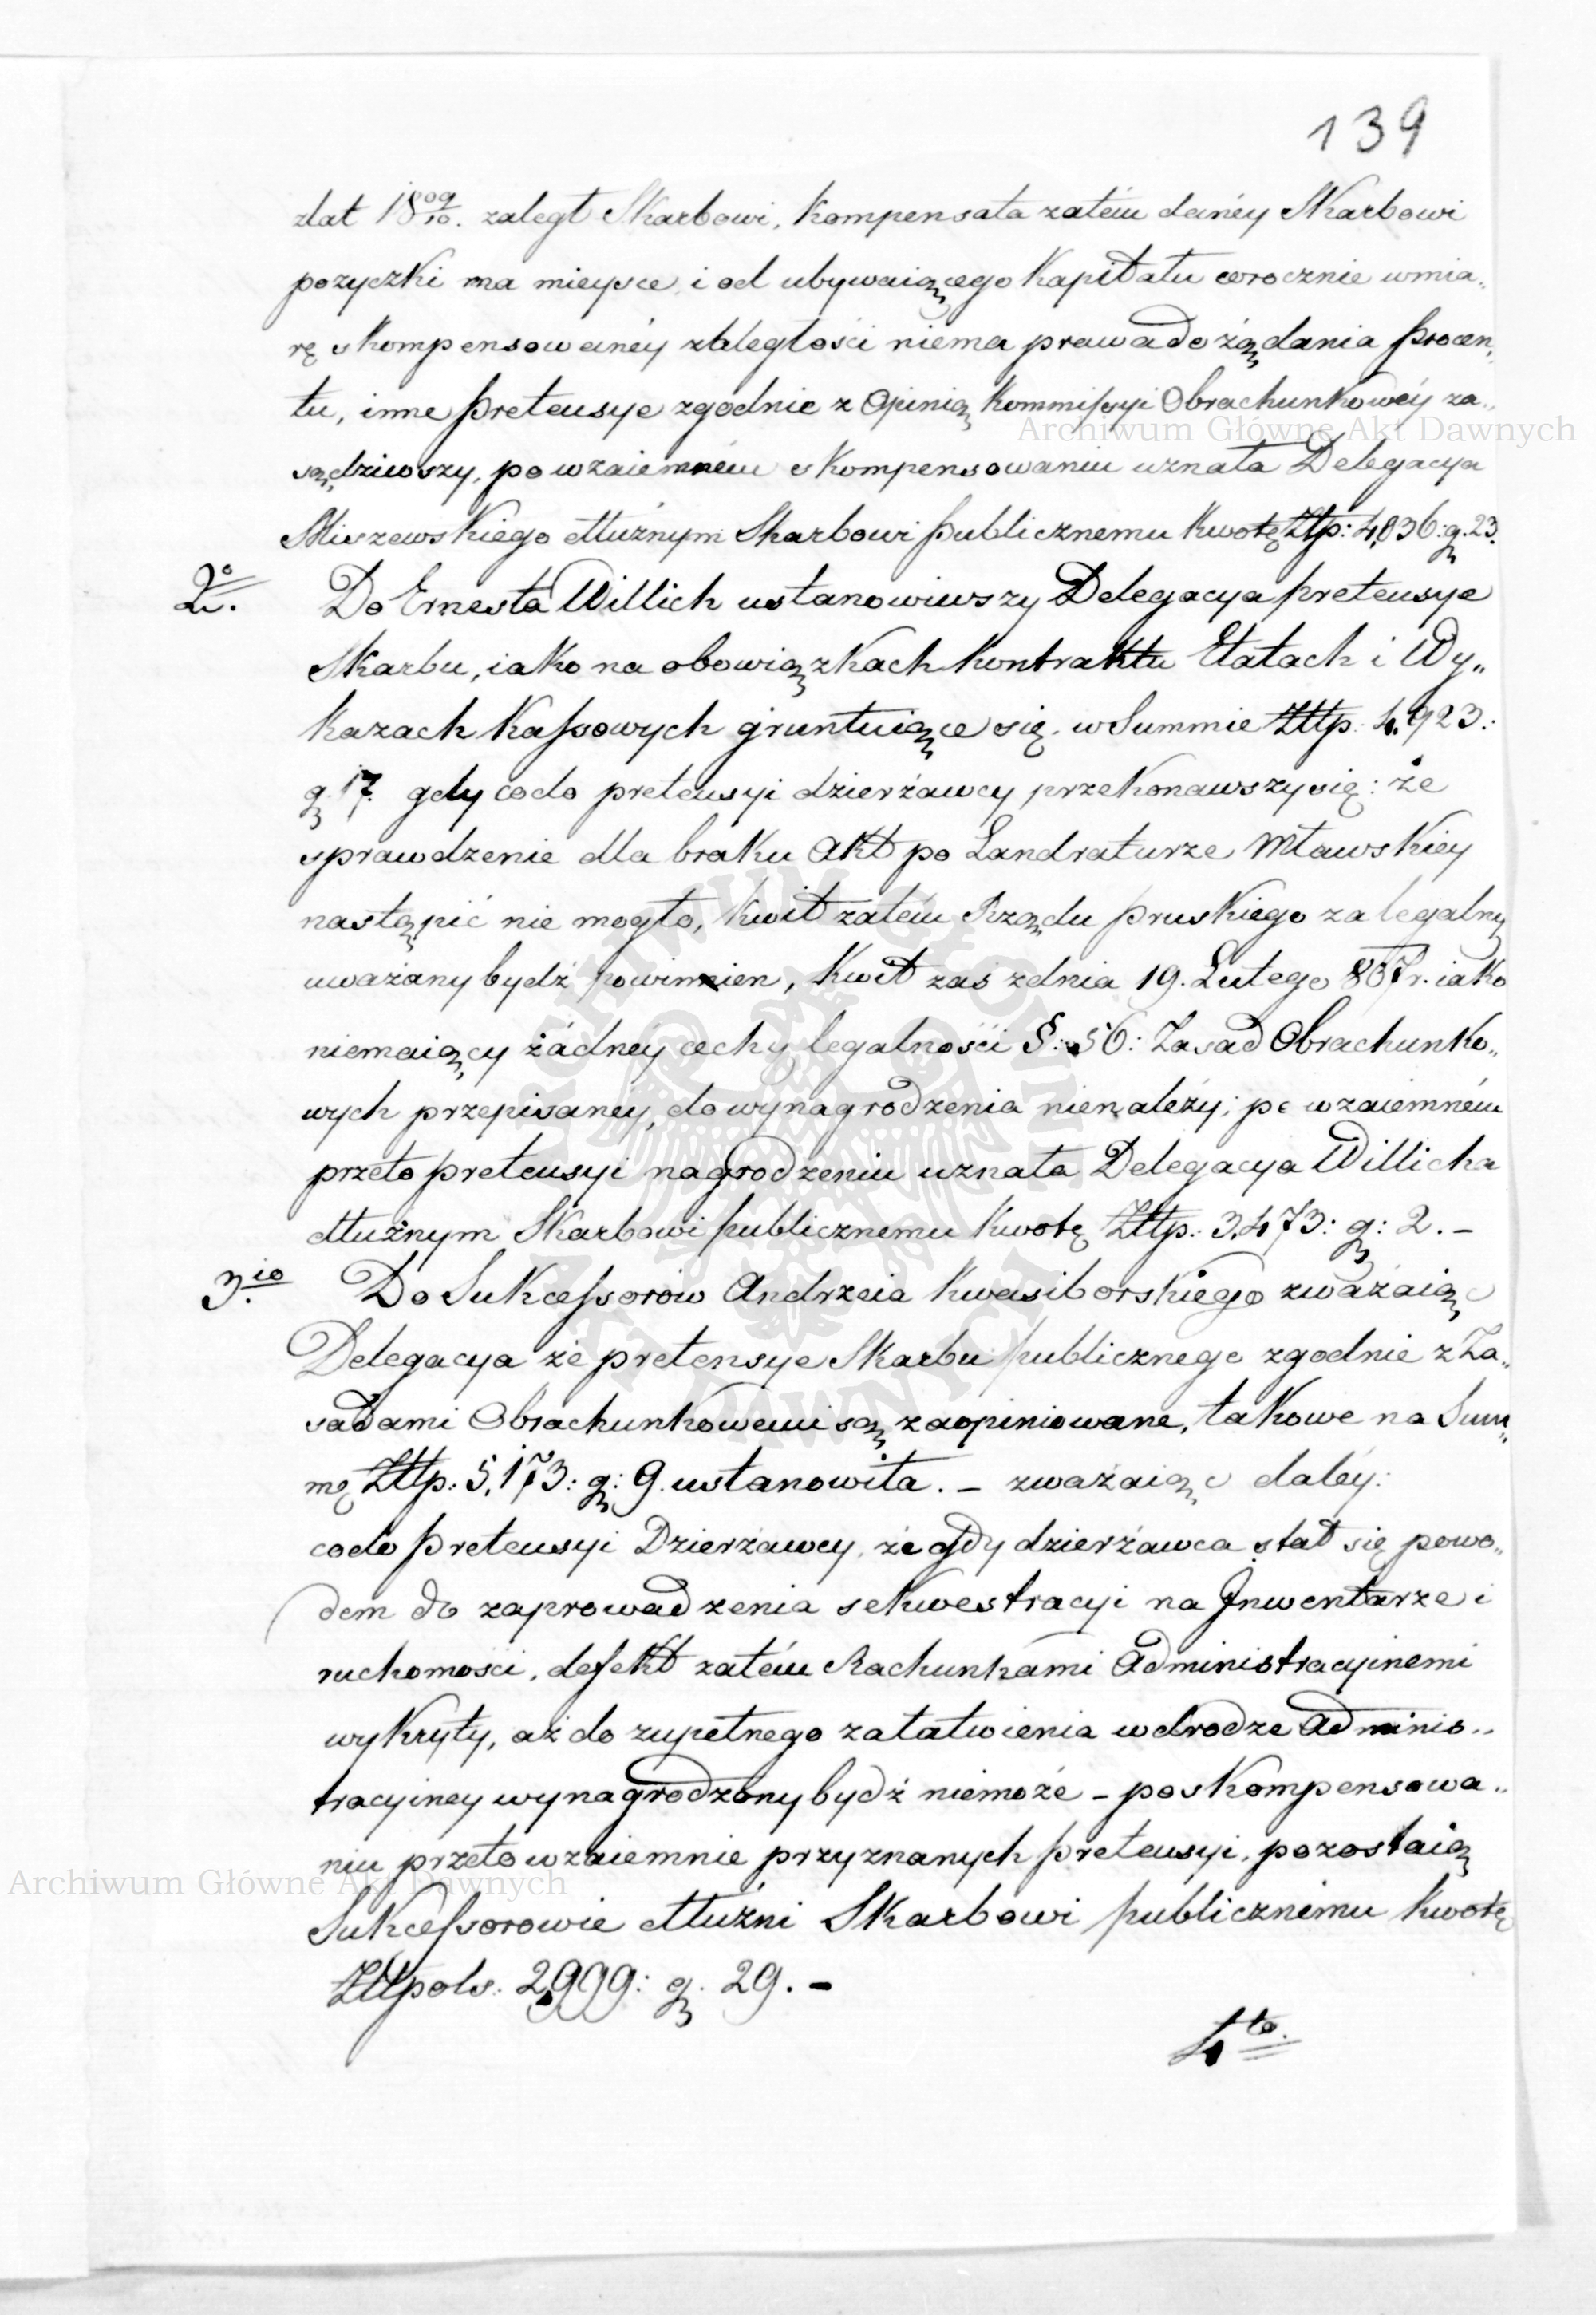 139
zlat 18 09/10. zaległ Skarbowi, kompensata zatém danéy Skarbowi
pozyczki ma mieysce i od ubywaiącego Kapitału corocznie wmia„
rę skompensowanéy zaległości niema prawa do żądania procen„
tu, inne pretensye zgodnie z Opinią Kommissyi Obrachunkowéy za„
sądziwszy, po wzaiemném skompensowaniu uznała Delegacya
Miszewskiego dłużnym Skarbowi publicznemu kwotę Złtp: 4,836: g. 23.
2do. Do Ernesta Willich ustanowiwszy Delegacya pretensye
Skarbu, iako na obowiązkach kontraktu Etatach i Wy„
kazach Kassowych gruntuiące się. w Summie Złtp. 4,923.:
g. 17. gdy codo pretensyi dzierżawcy przekonawszy się: że
sprawdzenie dla braku Akt po Landraturze Mławskiey
nastąpić nie mogło, kwit zatém Rządu pruskiego za legalny
uważany bydź powinien, Kwit zaś zdnia 19. Lutego 807 r. iako
niemaiący żádnéy cechy legalności §: 56: Zasad Obrachunko„
wych przepisaney, do wynagrodzenia nienależy; po wzaiemném
przeto pretensyi nagrodzeniu uznała Delegacya Willicha
dłużnym Skarbowi publicznemu kwotę Złtp: 3,473: g: 2. –
3.io Do Sukcessorów Andrzeia Kwasiborskiego zważaiąc
Delegacya że pretensye Skarbu publicznego zgodnie z Za„
sadami Obrachunkowemi są zaopiniowane, takowe na Sum„
mę Złtp: 5,173: g: 9. ustanowiła. – zważaiąc daléy:
codo pretensyi Dzierżawcy, że gdy dzierżawca stał się powo„
dem do zaprowadzenia sekwestracyi na Inwentarze i
ruchomości, defekt zatém Rachunkami Administracyinemi
wykryty, aż do zupełnego załatwienia wdrodze Adminis„
tracyiney wynagrodzony bydź niemoże – po skompensowa„
niu przeto wzaiemnie przyznanych pretensyi, pozostaią
Sukcessorowie dłużni Skarbowi publicznemu kwotę
Złtpols. 2,999: g. 29. –
4to.
Archiwum Główne Akt Dawnych
Archiwum Główne Akt Dawnych